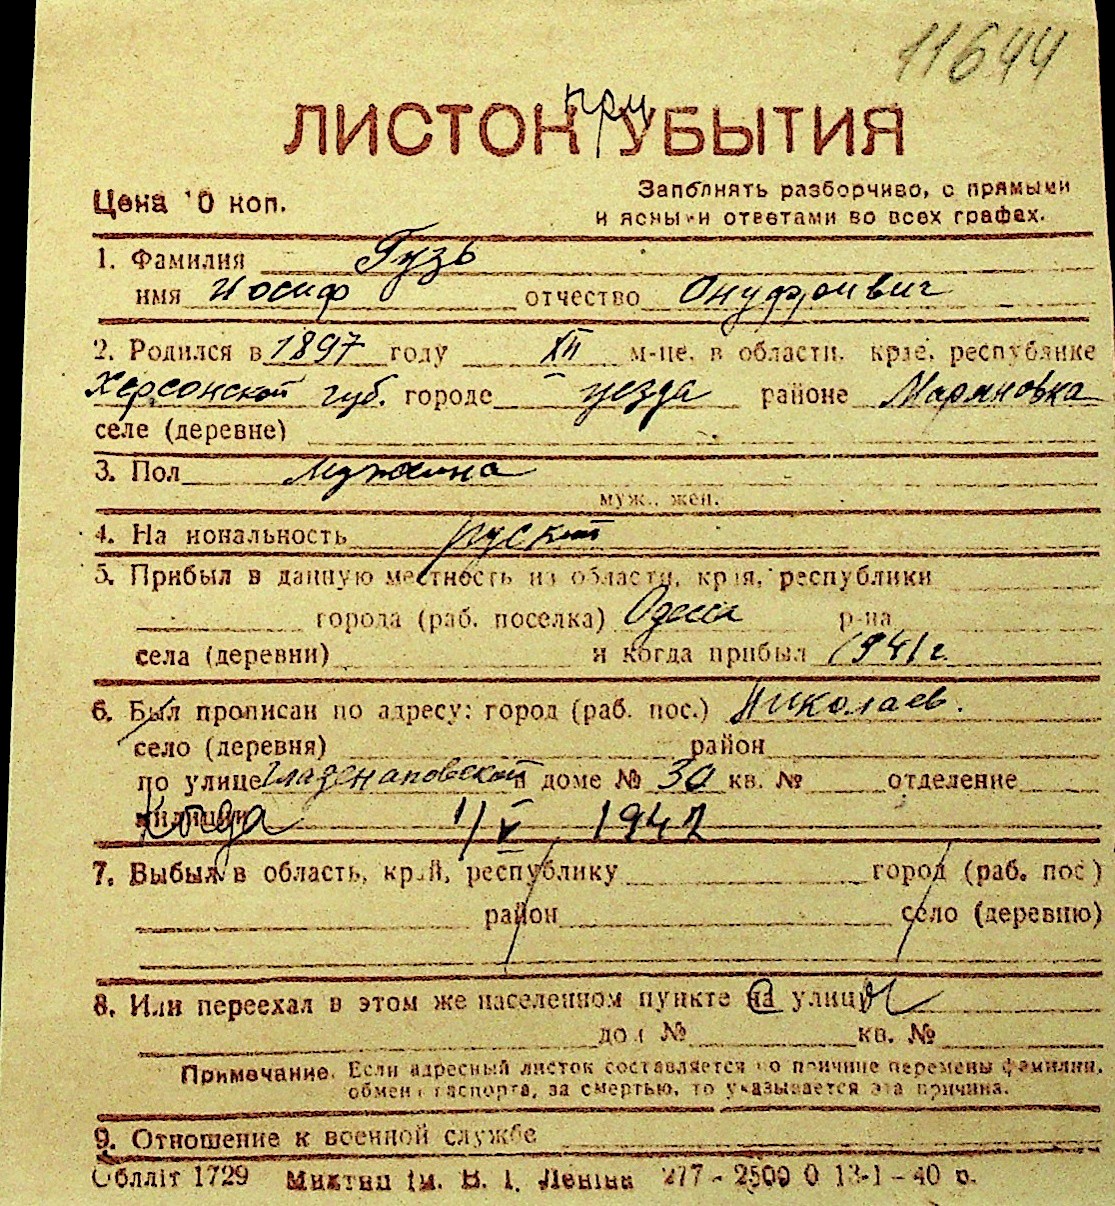 11644
ЛИСТОК при УБЫТИЯ
Цена 10 коп.
Заполнять разборчиво, с прямыми
и ясными ответами во всех графах.
1. Фамилия Гузь
имя Иосиф отчество Онуфриевич
2. Родился в 1897 году XII м-це, в области, крае, республике
Херсонской губ. городе уезда районе Марьяновка
селе (деревне)
3. Пол мужчина
муж., жен.
4. Национальность руский
5. Прибыл в данную местность из области, края, республики
города (раб. поселка) Одесса р-на
села (деревни) и когда прибыл 1941 г.
6. Был прописан по адресу: город (раб. пос.) Николаев.
село (деревня) район
по улице в доме № 30 кв. № отделение
милиции Когда 1/V 1942
7. Выбыл в область, край, республику город (раб. пос.)
район село (деревню)
8. Или переехал в этом же населенном пункте на с улицу ы
дом № кв. №
Примечание. Если адресный листок составляется по причине перемены фамилии,
обмена паспорта, за смертью, то указывается эта причина.
9. Отношение к военной службе
Облліт 1729 ім. В. І. Леніна 277-2500 0 13-1-40 р.